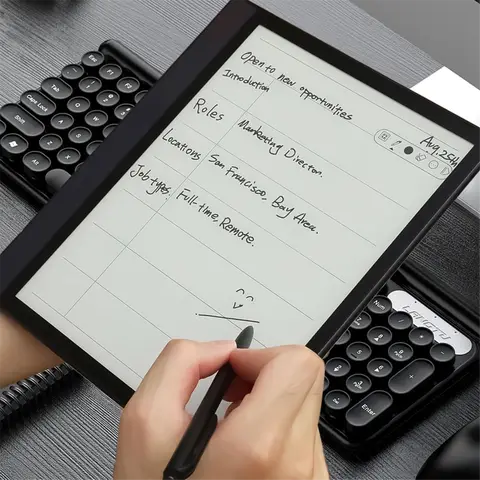 Open to new opportunities
Introduction
Aug.25th
Roles Marketing Director.
Locations San Francisco, Bay Area.
Job types: Full-time, Remote.
Tab
Caps Lock
Shift
Alt
LANGTU
Num
Enter